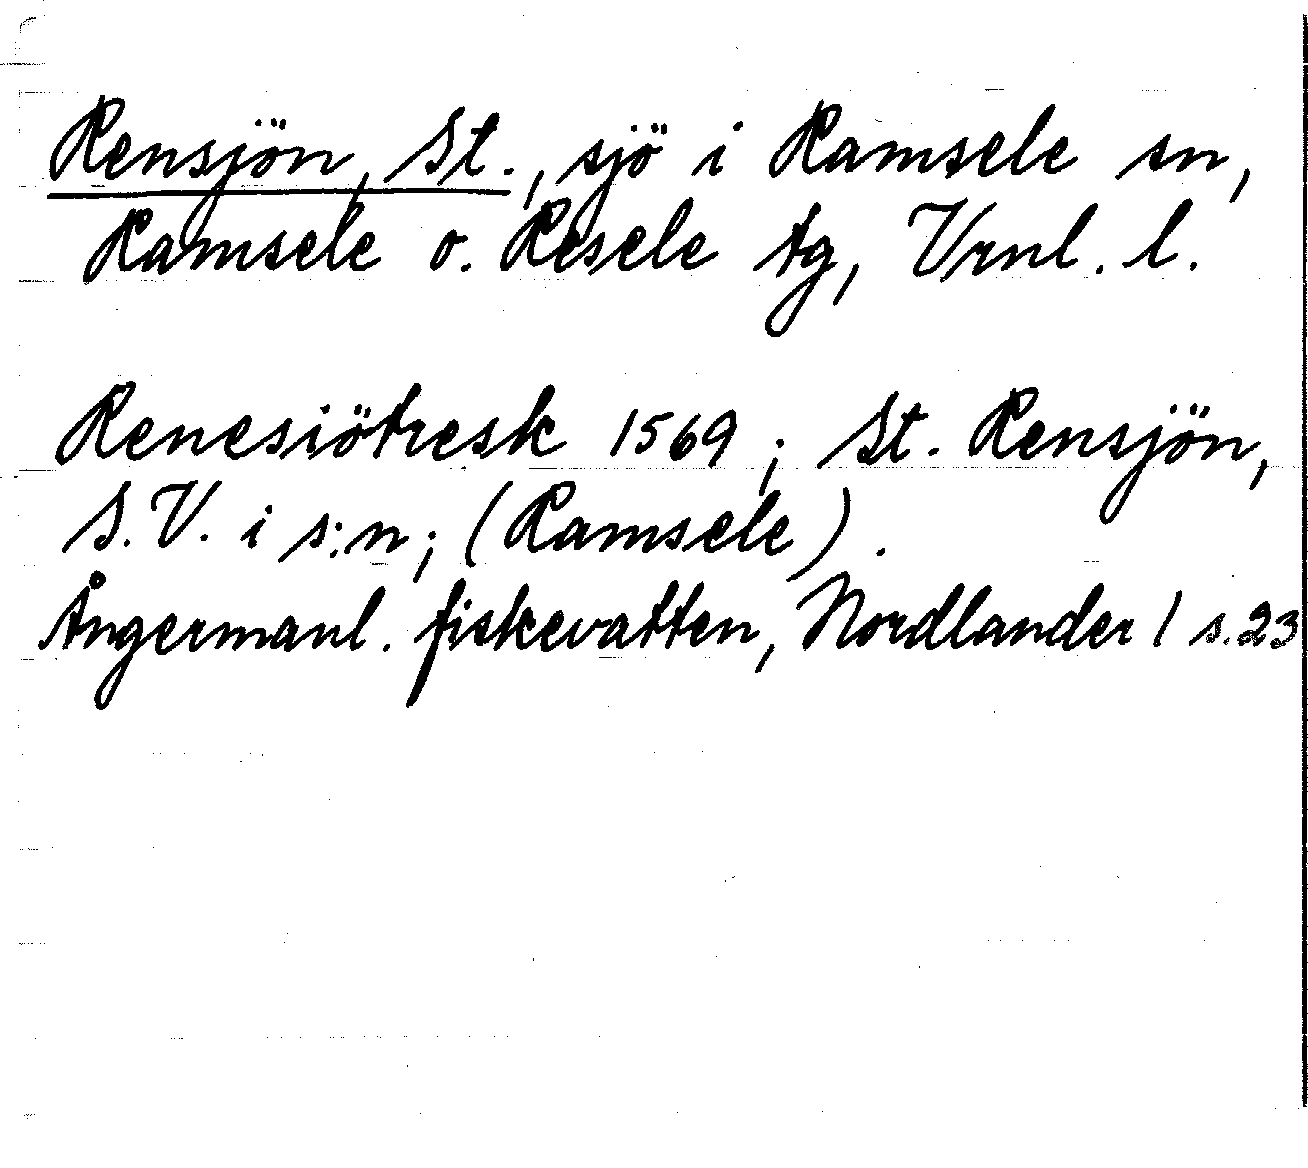 Rensjön, St., sjö i Ramsele sn,
Ramsele o. Resele tg, Vrnl. l.
Renesiötresk 1569; St. Rensjön,
S.V. i s:n; (Ramsele).
Ångermanl. fiskevatten, Nordlander 1 s. 23